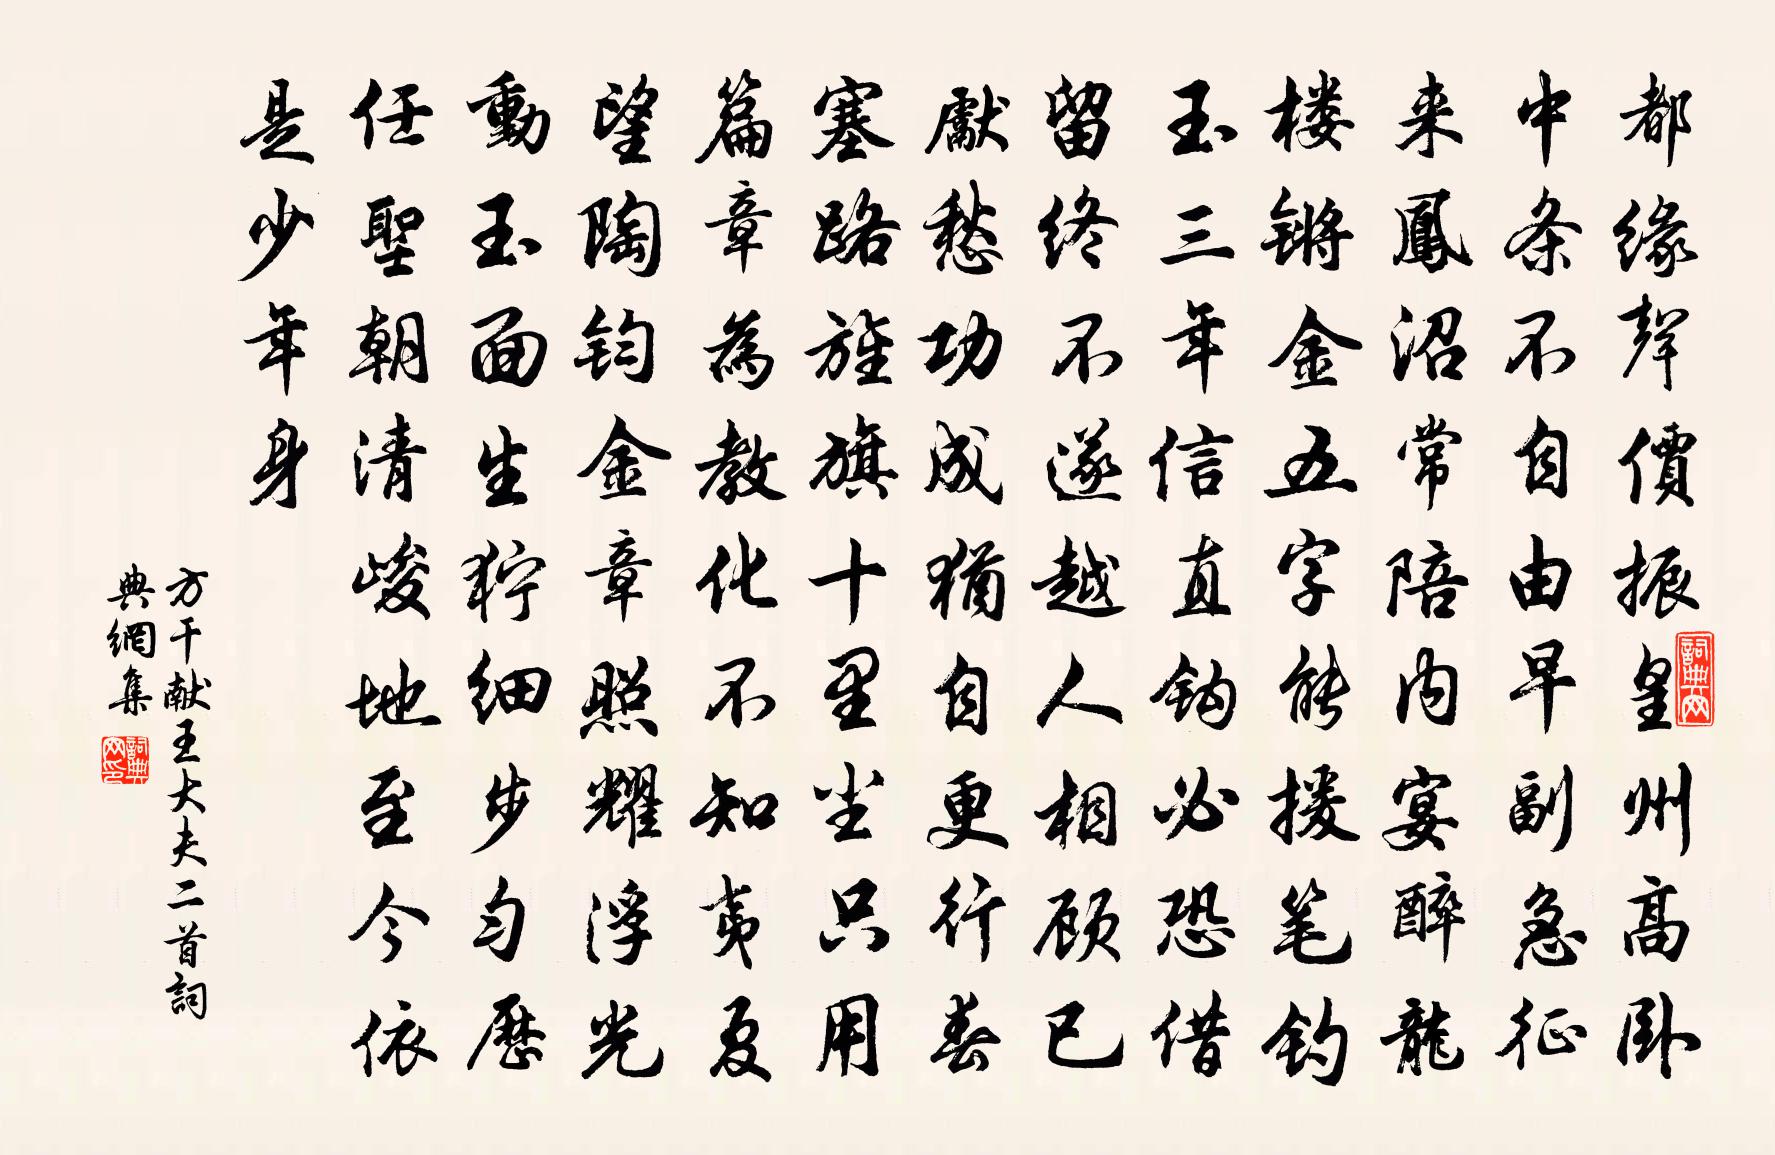 都缘聲價振皇州高卧
中条不自由早副急征
来鳳沼常陪内宴醉龍
楼锵金五字能援笔钓
玉三年信直钩必恐借
留终不遂越人相顾已
獻愁功成猶自更行春
塞路旌旗十里尘只用
篇章為教化不知夷夏
望陶钧金章照耀浮光
動玉面生狞细步匀歷
任聖朝清峻地至今依
是少年身
方干献王大夫二首詞
典網集
詞典网
詞典网印